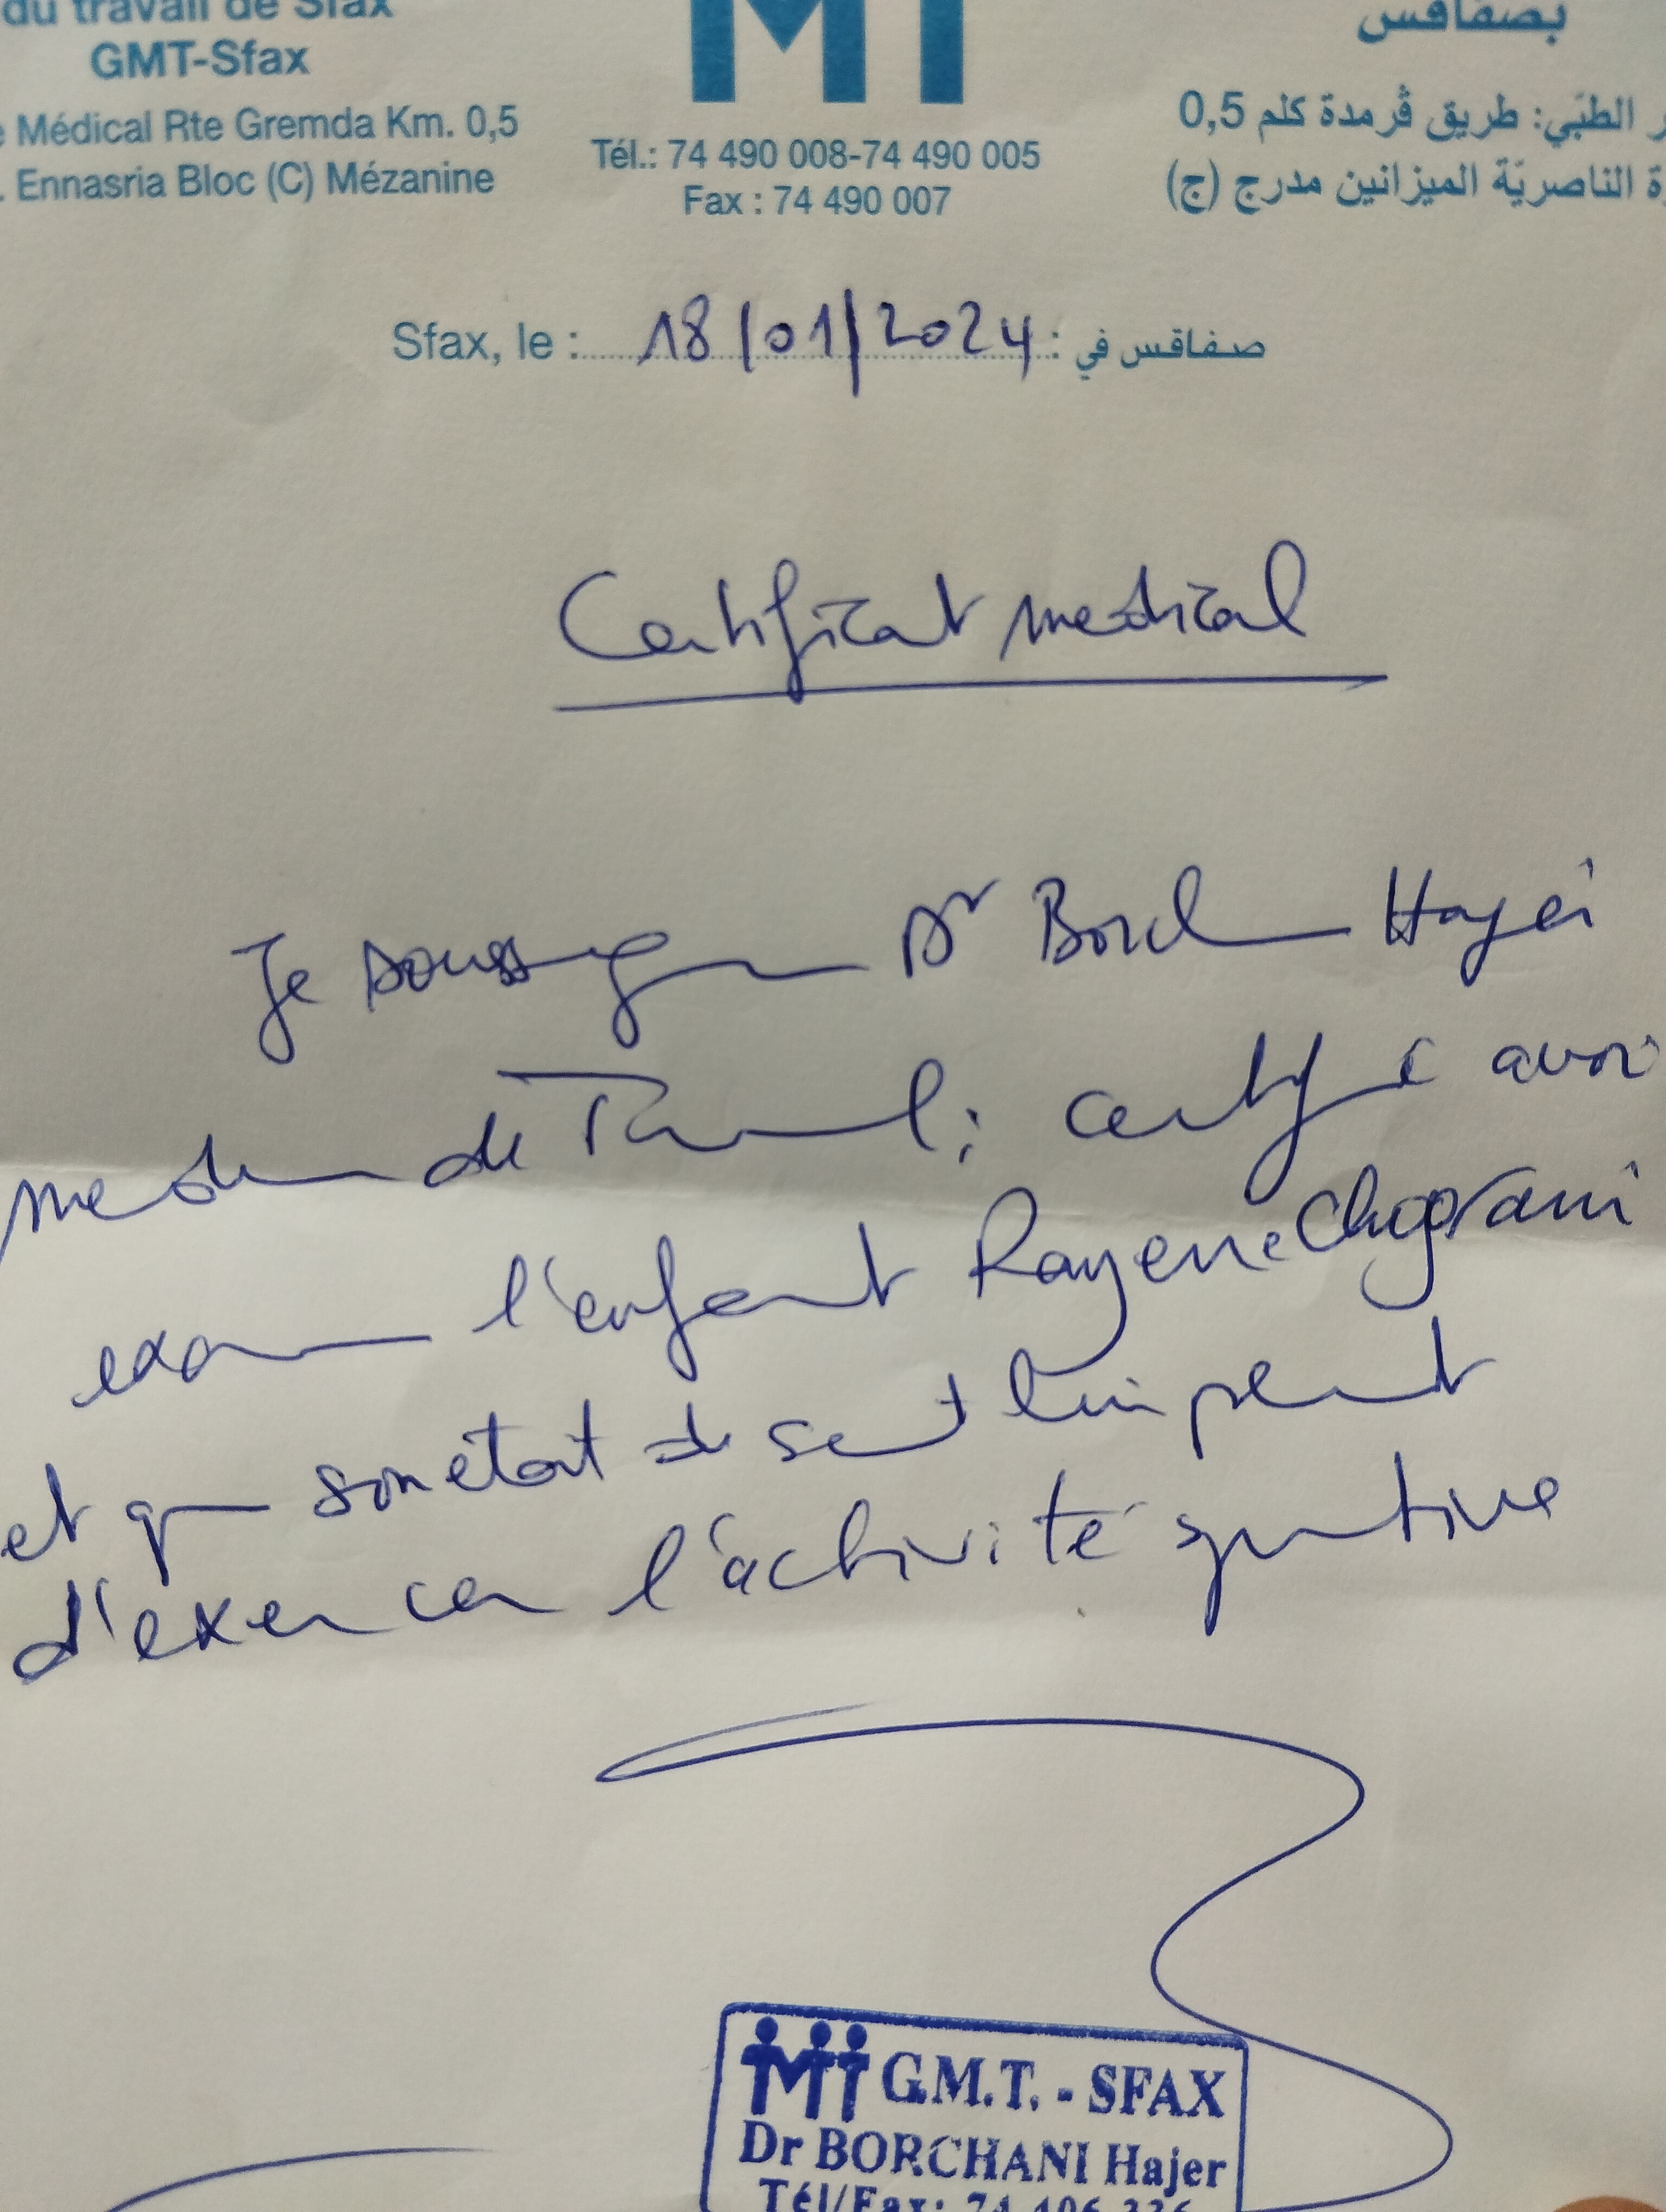 du travail de Sfax
GMT-Sfax
Médical Rte Gremda Km. 0,5
Ennasria Bloc (C) Mézanine
MT
Tél.: 74 490 008-74 490 005
Fax : 74 490 007
بصفاقس
الطبّي: طريق ڤرمدة كلم 0,5
الناصريّة الميزانين مدرج (ج)
Sfax, le : 18/01/2024 صفاقس في :
Certificat medical
Je soussigne Dr Borchani Hajer
medecin de Travail; certifie avoir
examine l'enfant Rayene
et que son état de santé lui permet
d'exercer l'activité sportive
G.M.T. - SFAX
Dr BORCHANI Hajer
Tél/Fax: 74 406 336